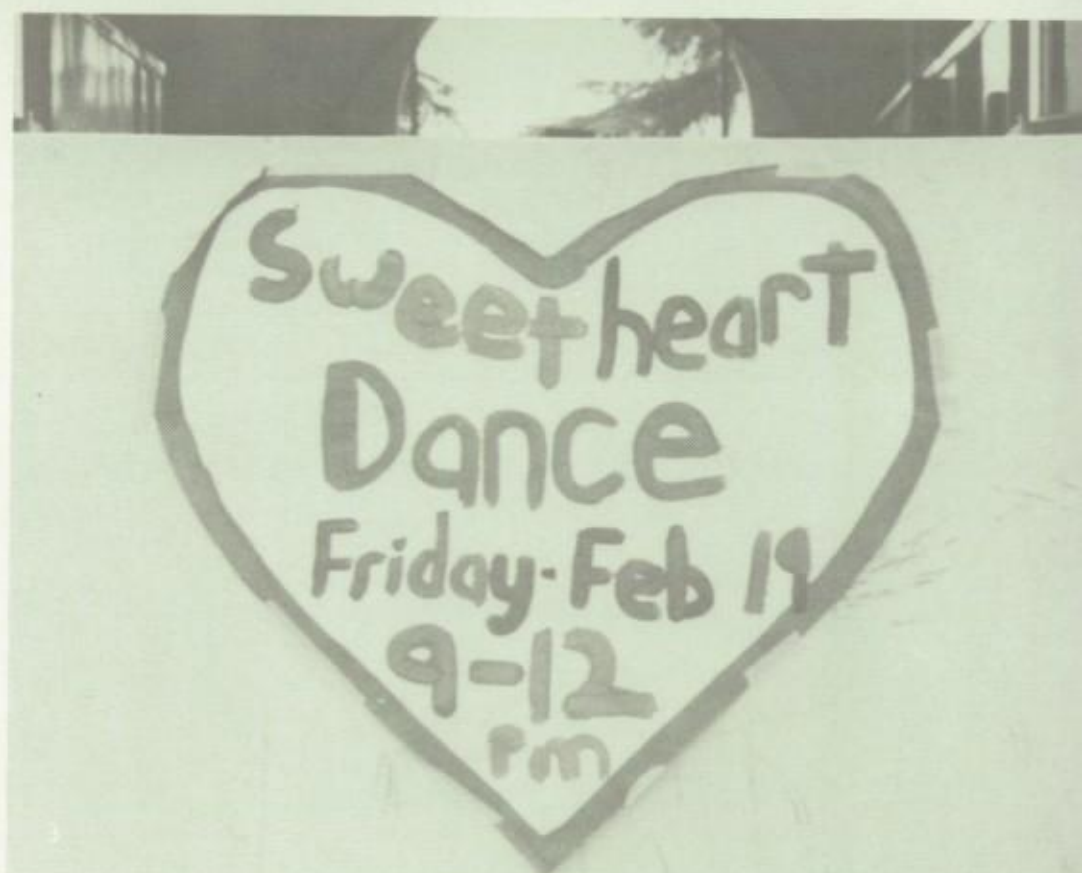 Sweetheart
Dance
Friday-Feb 19
9-12
pm